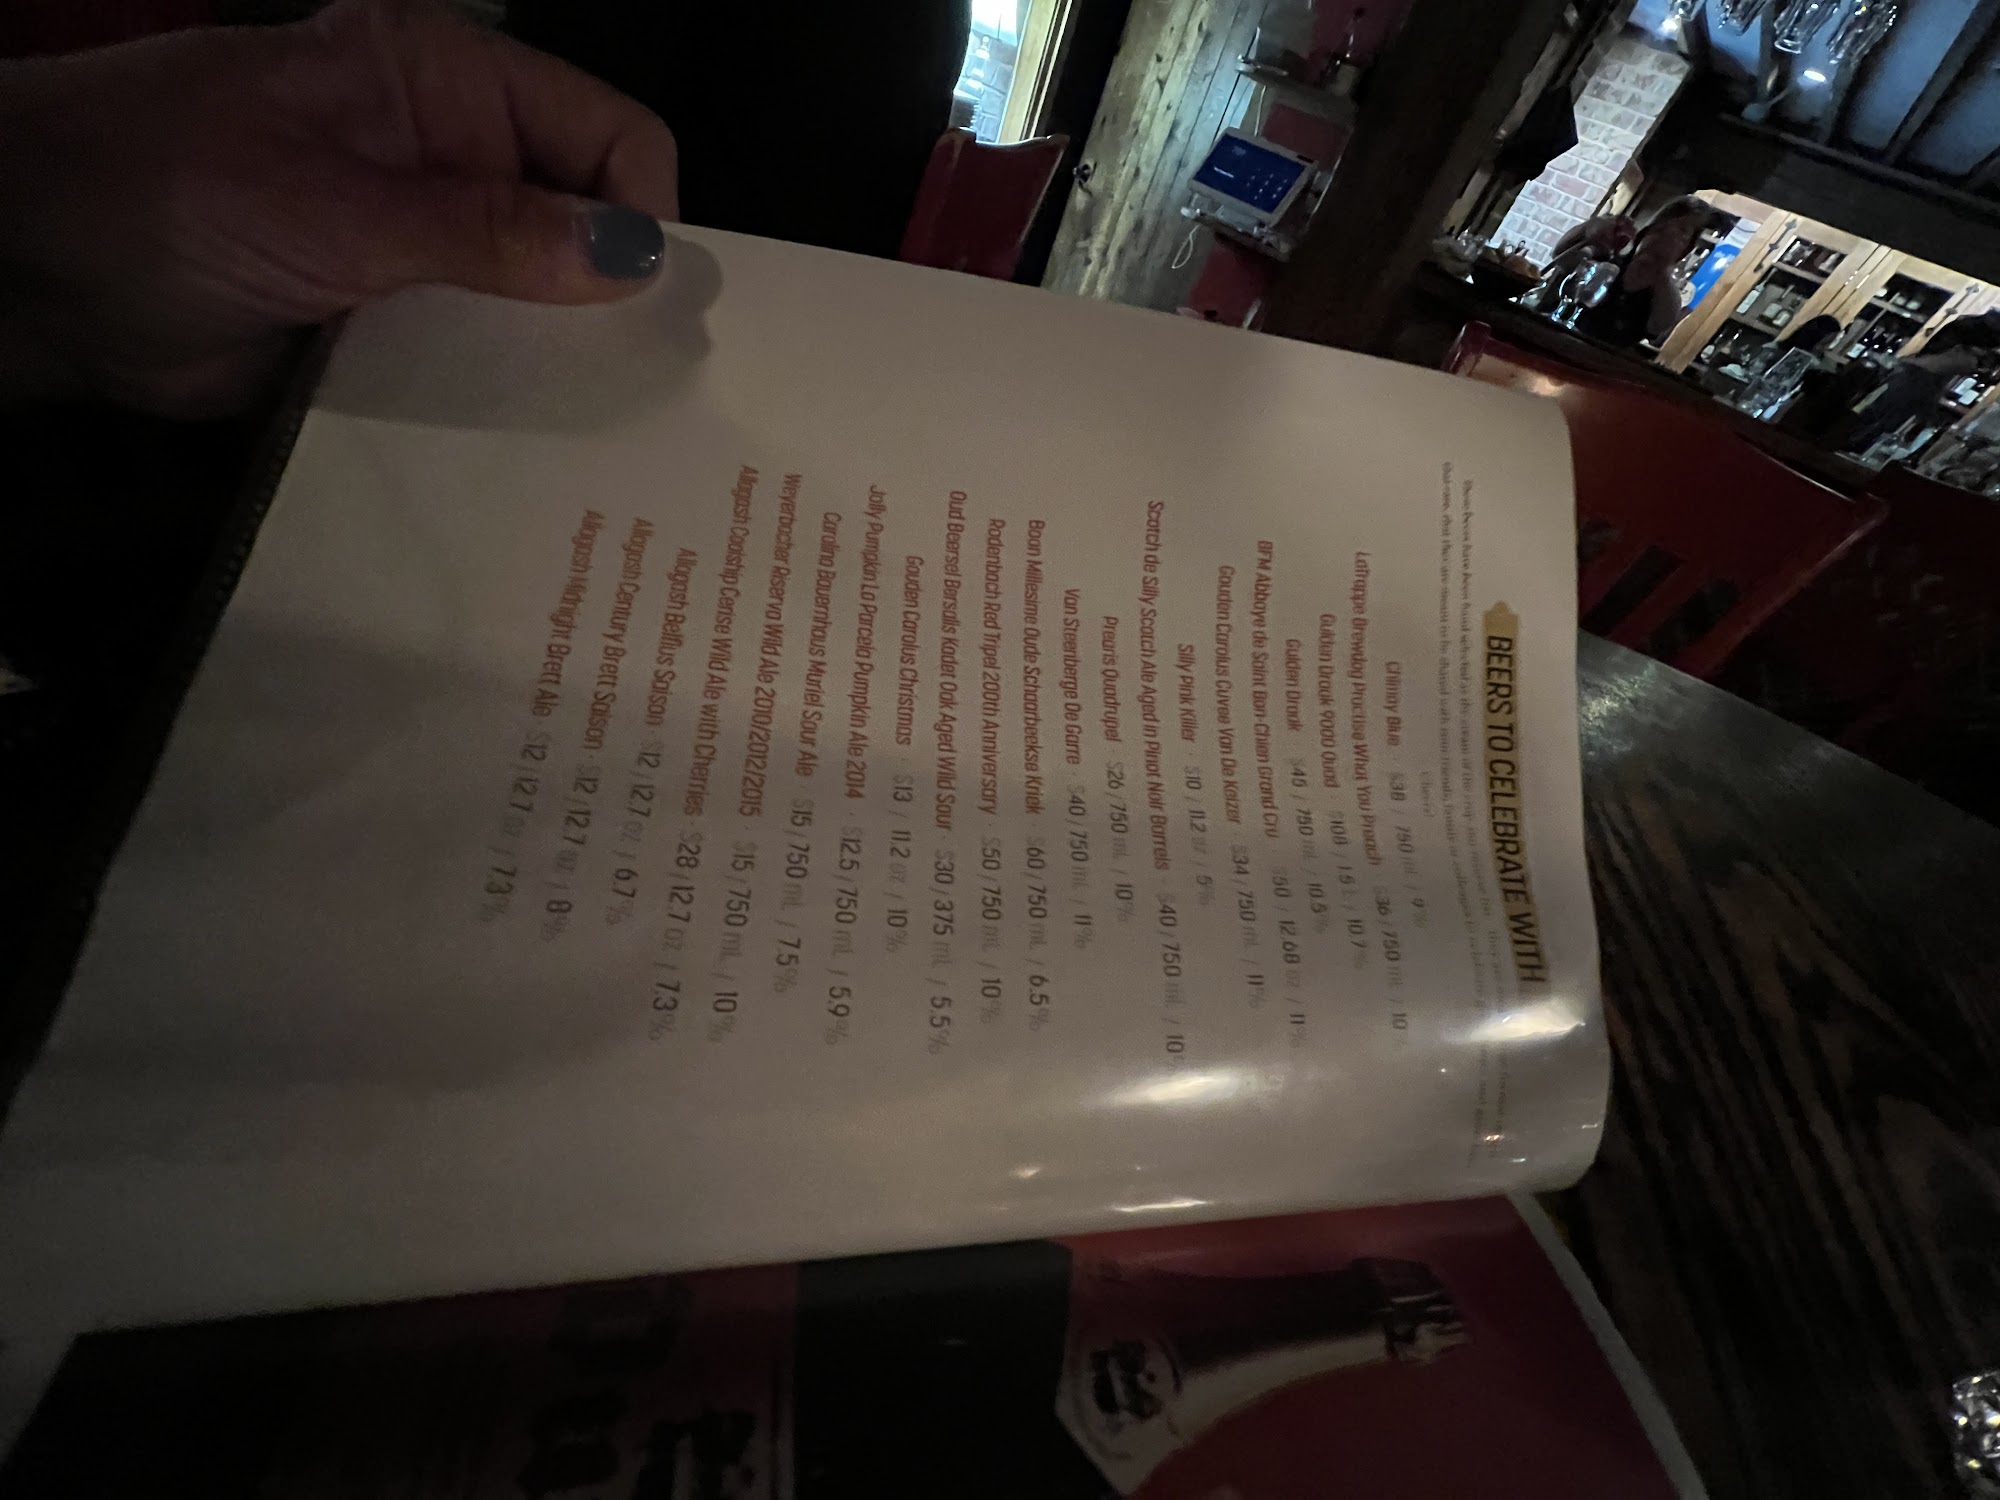 BEERS TO CELEBRATE WITH
These beers have been hand selected as the cream of the crop, our reserve list. They
that rare. But they are meant to be shared with your friends, family or colleagues to celebrate
Cheers!
Chimay Blue · $38 / 750 mL / 9%
LaGrange Brewdog Practise What You Preach · $36 / 750 mL / 10
Gulden Draak 9000 Quad · $108 / 1.5 L / 10.7%
Gulden Draak · $45 / 750 mL / 10.5%
BFM Abbaye de Saint Bon-Chien Grand Cru · $50 / 12.68 oz / 11%
Gouden Carolus Cuvee Van De Keizer · $34 / 750 mL / 11%
Silly Pink Killer · $10 / 11.2 oz / 5%
Scotch de Silly Scotch Ale Aged in Pinot Noir Barrels · $40 / 750 mL / 10%
Prearis Quadrupel · $26 / 750 mL / 10%
Van Steenberge De Garre · $40 / 750 mL / 11%
Boon Millesime Oude Schaarbeekse Kriek · $60 / 750 mL / 6.5%
Rodenbach Red Tripel 200th Anniversary · $50 / 750 mL / 10%
Oud Beersel Bersalis Kadet Oak Aged Wild Sour · $30 / 375 mL / 5.5%
Gouden Carolus Christmas · $13 / 11.2 oz / 10%
Jolly Pumpkin La Parcela Pumpkin Ale 2014 · $12.5 / 750 mL / 5.9%
Carolina Bauernhaus Muriel Sour Ale · $15 / 750 mL / 7.5%
Weyerbacher Riserva Wild Ale 2010/2012/2015 · $15 / 750 mL / 10%
Allagash Coolship Cerise Wild Ale with Cherries · $28 / 12.7 oz / 7.3%
Allagash Belfius Saison · $12 / 12.7 oz / 6.7%
Allagash Century Brett Saison · $12 / 12.7 oz / 8%
Allagash Midnight Brett Ale · $12 / 12.7 oz / 7.3%